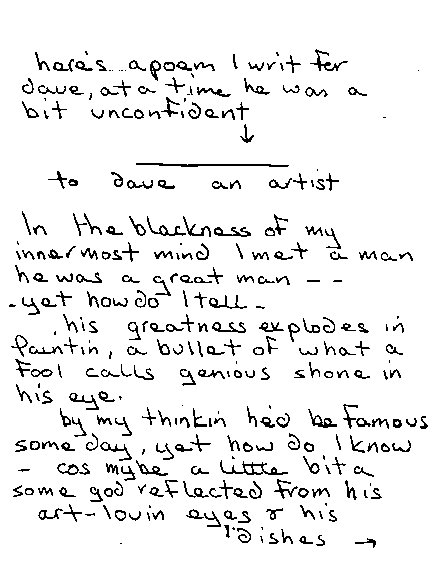 here's a poem I writ fer
dave, at a time he was a
bit unconfident
↓
to dave an artist
In the blackness of my
innermost mind I met a man
he was a great man - -
-yet how do I tell -
his greatness explodes in
paintin, a bullet of what a
fool calls genious shone in
his eye.
by my thinkin he'd be famous
some day, yet how do I know
- cos mybe a little bit a
some god reflected from his
art-lovin eyes & his
dishes →